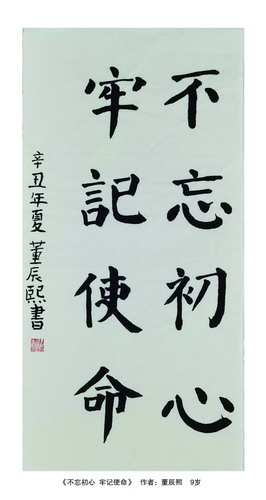 不忘初心
牢記使命
辛丑年夏董辰熙書
《不忘初心 牢记使命》 作者：董辰熙 9岁